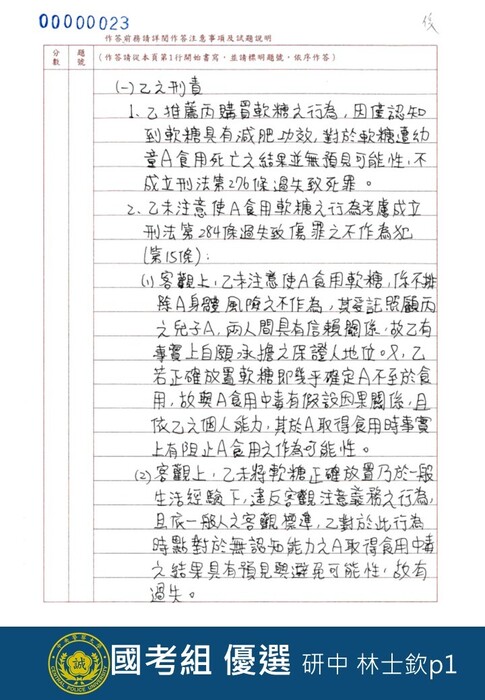 00000023
後
作答前務請詳閱作答注意事項及試題說明
分數
題號
(作答請從本頁第1行開始書寫,並請標明題號,依序作答)
(一)乙之刑責
1、乙推薦丙購買軟糖之行為,因僅認知
到軟糖具有減肥功效,對於軟糖遭幼
童A食用死亡之結果並無預見可能性,不
成立刑法第276條過失致死罪。
2、乙未注意使A食用軟糖之行為考慮成立
刑法第284條過失致傷罪之不作為犯
(第15條):
(1)客觀上,乙未注意使A食用軟糖,係不排
除A身體風險之不作為,其受託照顧丙
之兒子A,兩人間具有信賴關係,故乙有
事實上自願承擔之保證人地位。又,乙
若正確放置軟糖即幾乎確定A不至於食
用,故與A食用中毒有假設因果關係,且
依乙之個人能力,其於A取得食用時事實
上有阻止A食用之作為可能性。
(2)客觀上,乙未將軟糖正確放置乃於一般
生活經驗下,違反客觀注意義務之行為,
且依一般人之客觀標準,乙對於此行為
時點對於無認知能力之A取得食用中毒
之結果具有預見與避免可能性,故有
過失。
誠
CENTRAL POLICE UNIVERSITY
國考組 優選 研中 林士欽p1